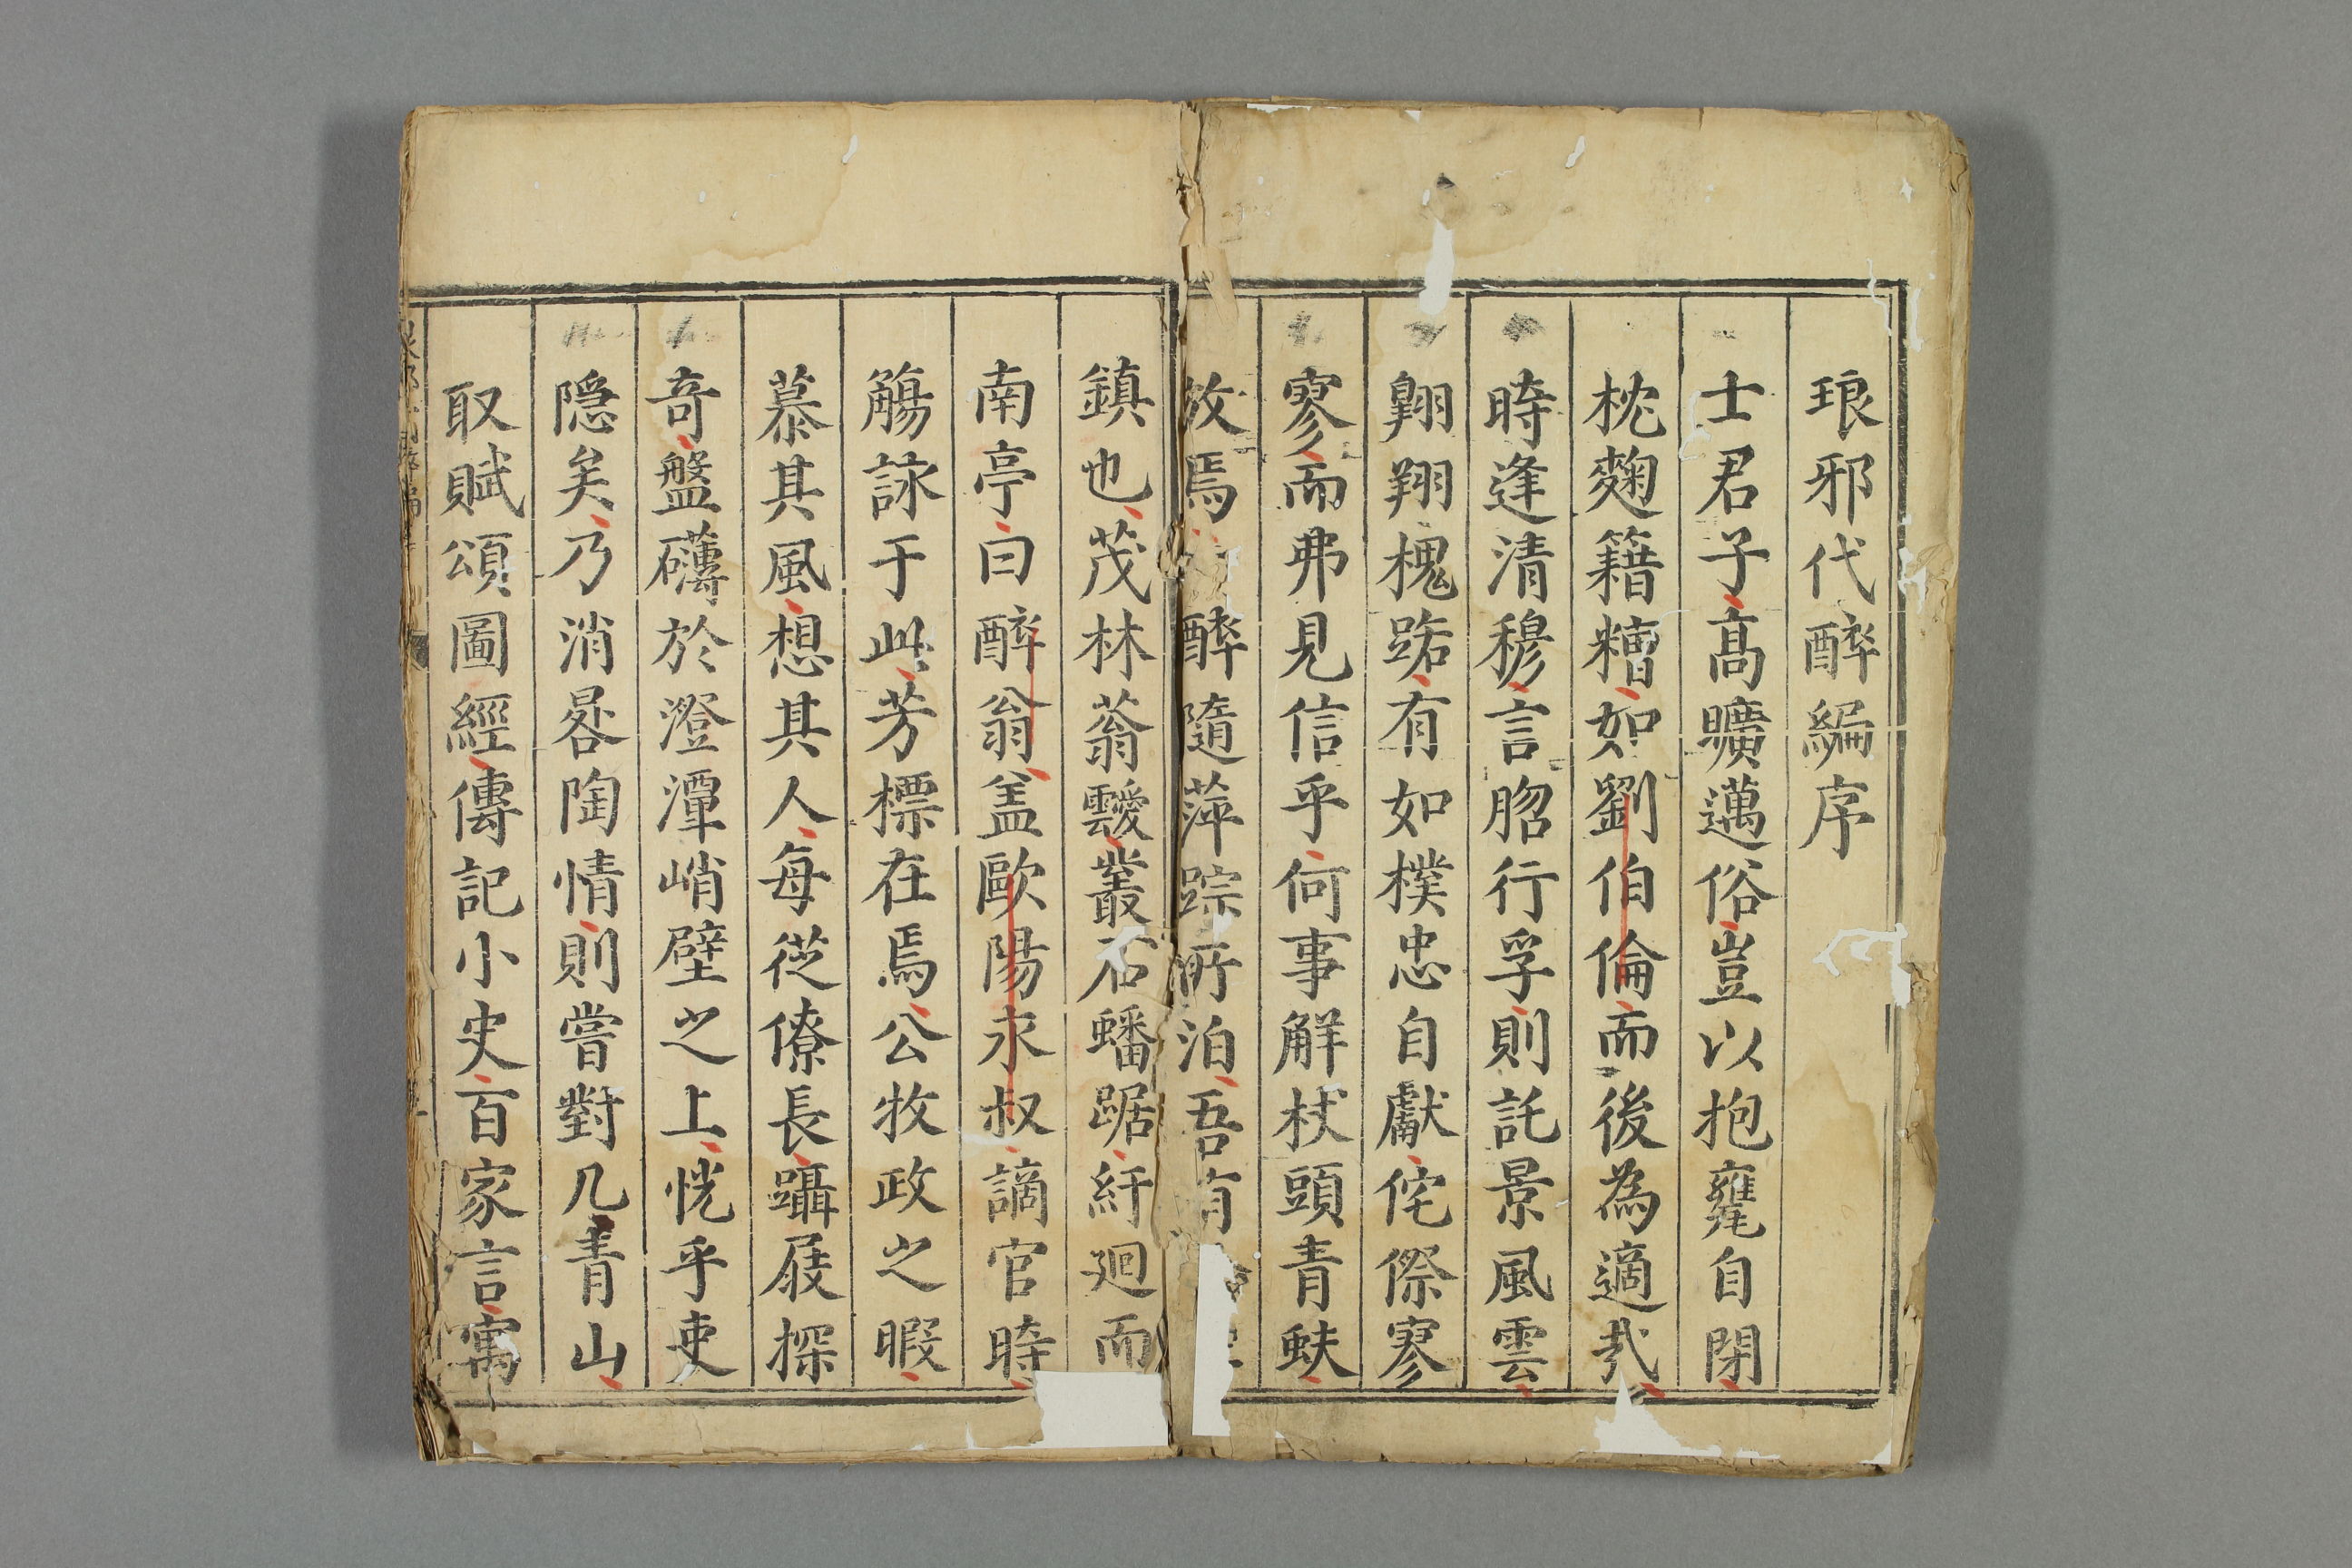 琅邪代醉編序
士君子高曠邁俗豈以抱甕自閉
枕麴籍糟如劉伯倫而後為適㢤
時逢清穆言䏚行孚則託景風雲
翺翔槐踞有如樸忠自獻侘傺寥
寥而弗見信乎何事解杖頭青蚨
放焉醉隨萍踪所泊吾有
鎮也茂林蓊靉叢石蟠踞紆迴而
南亭曰醉翁盖歐陽永叔謫官時
觴詠于此芳標在焉公牧政之暇
慕其風想其人每從僚長躡屐探
奇盤礴於澄潭峭壁之上恍乎吏
隱矣乃消晷陶情則嘗對几青山
取賦頌圖經傳記小史百家言寓